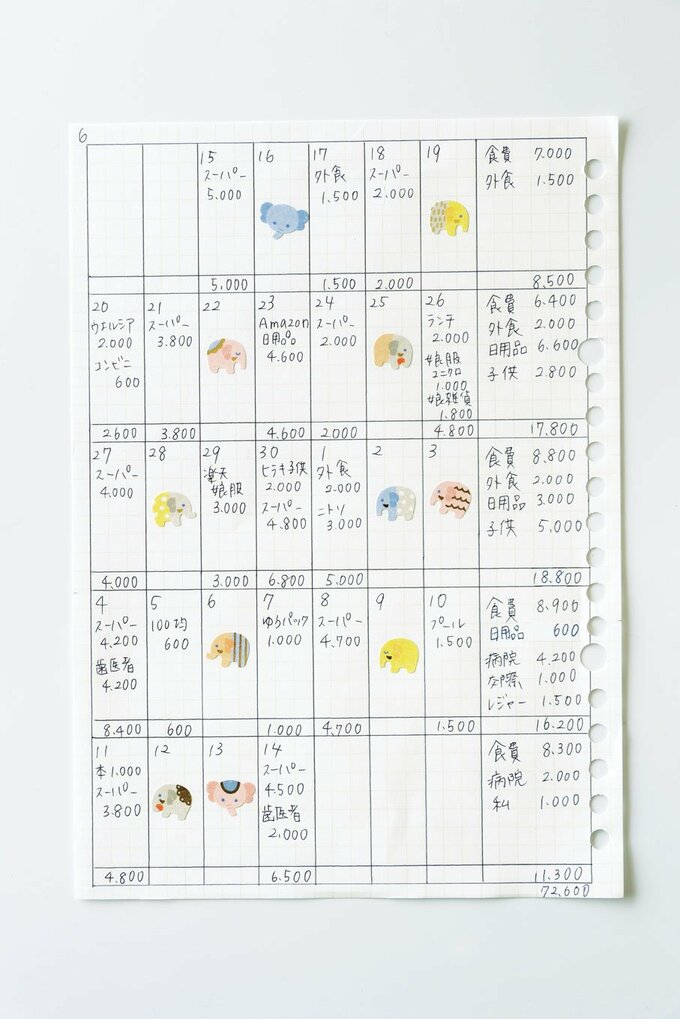 6
15
スーパー
5.000
16
17
外食
1.500
18
スーパー
2.000
19
食費 7.000
外食 1.500
5.000
1.500
2.000
8.500
20
ウエルシア
2.000
コンビニ
600
21
スーパー
3.800
22
23
Amazon
日用品
4.600
24
スーパー
2.000
25
26
ランチ
2.000
娘服
ユニクロ
1.000
娘雑貨
1.800
食費 6.400
外食 2.000
日用品 6.600
子供 2.800
2600
3.800
4.600
2.000
4.800
17.800
27
スーパー
4.000
28
29
楽天
娘服
3.000
30
ヒラキ子供
2.000
スーパー
4.800
1
外食
2.000
ニトリ
3.000
2
3
食費 8.800
外食 2.000
日用品 3.000
子供 5,000
4.000
3.000
6.800
5.000
18.800
4
スーパー
4.200
歯医者
4.200
5
100均
600
6
7
ゆうパック
1.000
8
スーパー
4.700
9
10
プール
1.500
食費 8.900
日用品 600
病院 4.200
交際 1.000
レジャー 1.500
8.400
600
1.000
4.700
1.500
16.200
11
本1.000
スーパー
3.800
12
13
14
スーパー
4.500
歯医者
2.000
食費 8.300
病院 2.000
私 1.000
4.800
6.500
11.300
72.600